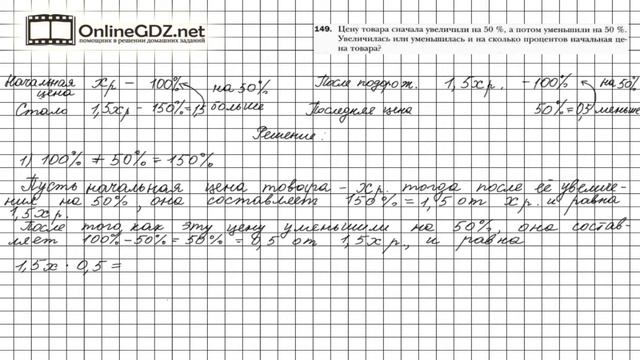 OnlineGDZ.net
помощник в решении домашних заданий
149. Цену товара сначала увеличили на 50 %, а потом уменьшили на 50 %.
Увеличилась или уменьшилась и на сколько процентов начальная це-
на товара?
Начальная цена хр – 100% на 50% больше
Стало 1,5хр – 150% = 1,5
После подорож. 1,5хр. – 100% на 50% меньше
Последняя цена 50% = 0,5
Решение:
1) 100% + 50% = 150%
Пусть начальная цена товара – хр. тогда после её увеличе-
ния на 50%, она составляет 150% = 1,5 от хр. и равна
1,5хр.
После того, как эту цену уменьшили на 50%, она состав-
ляет 100% – 50% = 50% = 0,5 от 1,5хр., и равна
1,5х · 0,5 =